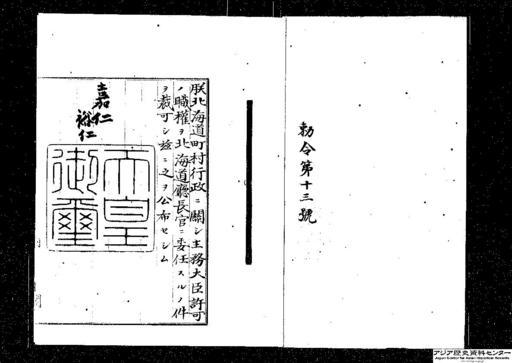 勅令第十三號
朕北海道町村行政ニ關シ主務大臣許可
ノ職權ヲ北海道廳長官ニ委任スルノ件
ヲ裁可シ茲ニ之ヲ公布セシム
嘉仁
裕仁
天皇
御璽
アジア歴史資料センター
Japan Center for Asian Historical Records